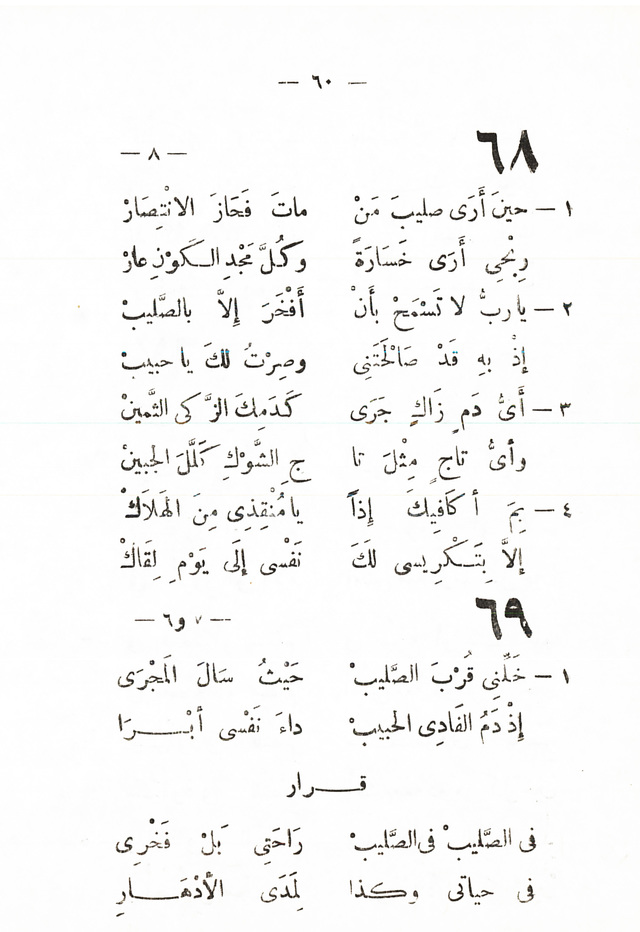 — ٦٠ —
٦٨ — ٨ —
١ — حينَ أَرَى صليبَ مَنْ ماتَ فَحَازَ الانْتِصَارْ
رِبْحِى أَرَى خَسَارَةً وكُلَّ مَجْدِ الكَوْنِ عارْ
٢ — ياربُّ لا تَسْمَحْ بِأَنْ أَفْخَرَ إِلاَّ بالصَّليبْ
إِذْ بِهِ قَدْ صَالَحْتَنِى وصِرْتُ لَكَ يا حبيبْ
٣ — أَىُّ دَمٍ زَاكٍ جَرَى كَدَمِكَ الزَّكى الثَّمينْ
وأىُّ تاجٍ مِثْلَ تا جِ الشَّوْكِ كَلَّلَ الجبينْ
٤ — بِمَ أكَافيكَ إِذاً يا مُنْقِذِى مِنَ الهَلَاكْ
إلاَّ بِتَكْرِيسى لَكَ نَفْسى إِلَى يَوْمِ لِقَاكْ
٦٩ — ٧ و٦ —
١ — خَلِّنِى قُرْبَ الصَّليبْ حَيْثُ سَالَ المَجْرَى
إِذْ دَمُ الفَادِى الحبيبْ داءَ نَفْسى أبْرَا
قرار
فى الصَّليبْ فى الصَّليبْ رَاحَتِى بَلْ فَخْرِى
فى حياتى وكذا لِمَدَى الأَدْهَارِ